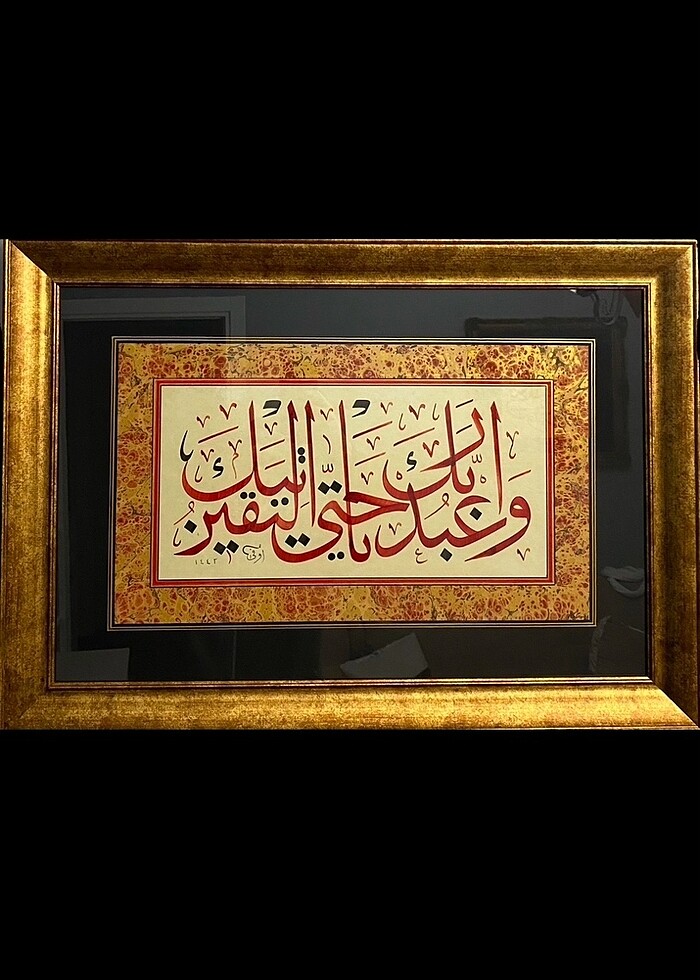 وَاعْبُدْ رَبَّكَ حَتَّىٰ يَأْتِيَكَ الْيَقِينُ
١٤٤٣